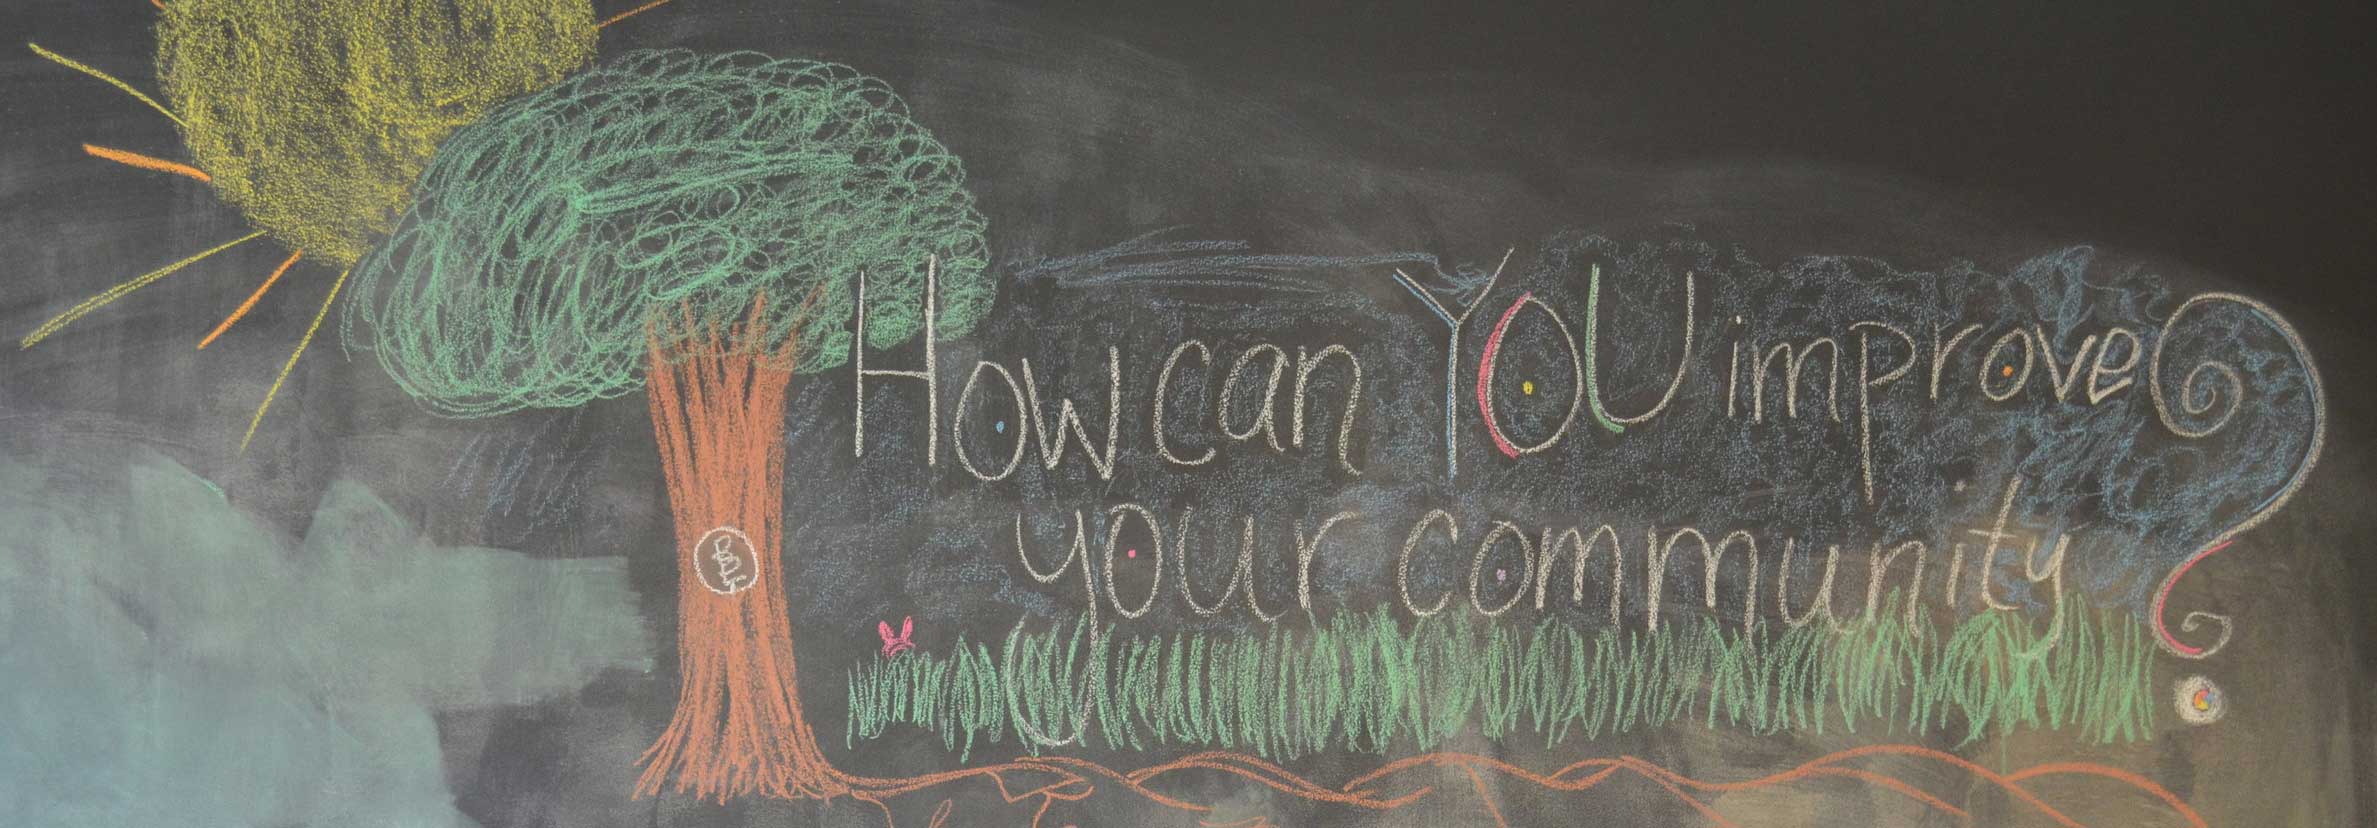 How can YOU improve
your community?